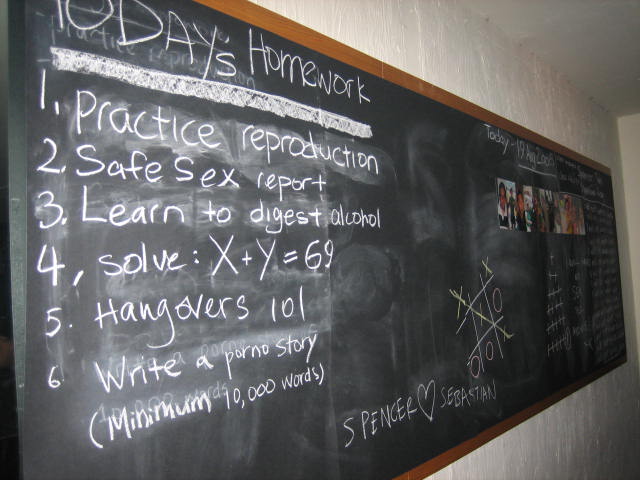 TODAY's Homework
1. Practice reproduction
2. Safe Sex report
3. Learn to digest alcohol
4, solve: X + Y = 69
5. Hangovers 101
6. Write a porno story
(Minimum 10,000 words)
SPENCER ♡ SEBASTIAN
Today - 19 Aug 2008